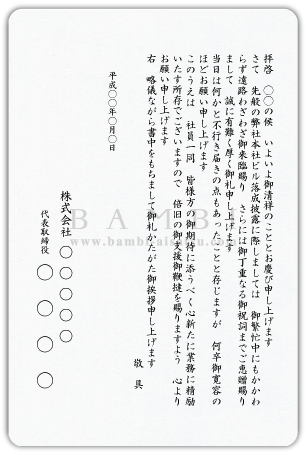 拝啓　〇〇の候　いよいよ御清祥のこととお慶び申し上げます
さて　先般の弊社本社ビル落成披露に際しましては　御繁忙中にもかかわ
らず遠路わざわざ御来臨賜り　さらには御丁重なる御祝詞までご恵贈賜り
まして　誠に有難く厚く御礼申し上げます
当日は何かと不行き届きの点もあったことと存じますが　何卒御寛容の
ほどお願い申し上げます
このうえは　社員一同　皆様方の御期待に添うべく心新たに業務に精励
いたす所存でございますので　倍旧の御支援御鞭撻を賜りますよう　心より
お願い申し上げます
右　略儀ながら書中をもちまして御礼かたがた御挨拶申し上げます
敬具
平成〇〇年〇月〇日
株式会社　〇〇〇〇〇
代表取締役　〇〇〇〇
BAMB